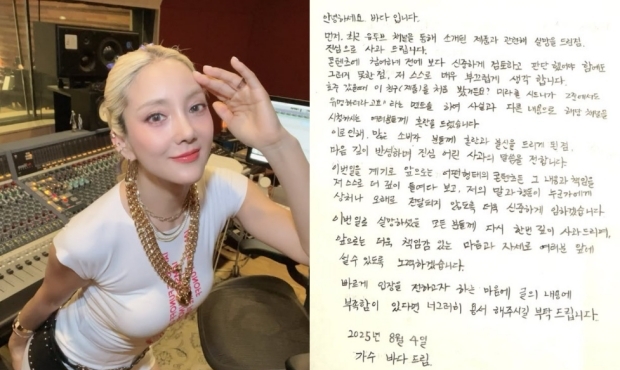 안녕하세요 바다 입니다.
먼저, 최근 유튜브 채널을 통해 소개된 제품과 관련해 실망을 드린점,
진심으로 사과 드립니다.
콘텐츠에 참여하게 전에 보다 신중하게 검토하고 판단했어야 함에도
그러지 못한점, 저 스스로 매우 부끄럽게 생각 합니다.
호주 갔을때 이 크림(제품)을 처음 봤거든요? 미라클 시드니가 교민에서도
유명하더라고요> 라는 멘트를 하여 사실과 다른 내용으로 해당 채널을
시청하시는 여러분들께 혼란을 드렸습니다
이로 인해, 많은 소비자 분들께 혼란과 불신을 드리게 된점,
마음 깊이 반성하며 진심 어린 사과의 말씀을 전합니다.
이번일을 계기로 앞으로는 어떤형태의 콘텐츠든 그 내용과 책임을
저 스스로 더 깊이 들여다 보고, 저의 말과 행동이 누군가에게
상처나 오해로 전달되지 않도록 더욱 신중하게 임하겠습니다
이번일로 실망하셨을 모든 분들께 다시 한번 깊이 사과드리며,
앞으로는 더욱 책임감 있는 마음과 자세로 여러분 앞에
설 수 있도록 노력하겠습니다.
바르게 입장을 전하고자 하는 마음에 글의 내용에
부족함이 있다면 너그러히 용서 해주시길 부탁 드립니다.
2025년 8월 4일
가수 바다 드림.